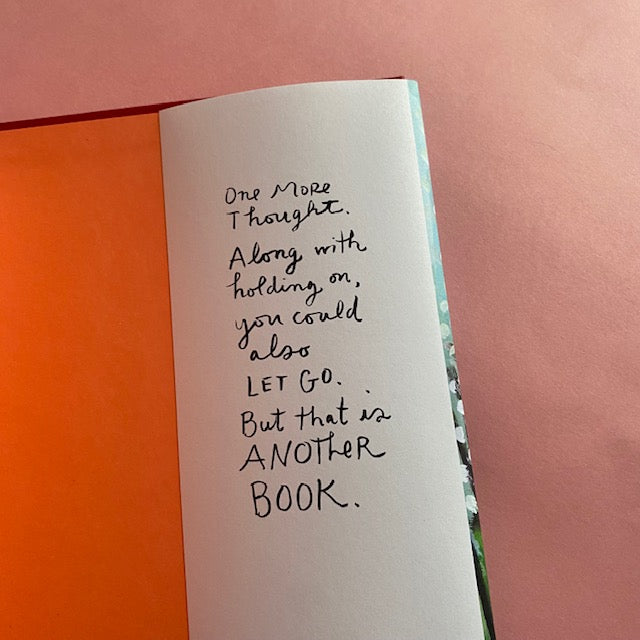 One More
Thought.
Along with
holding on,
you could
also
LET GO.
But that is
ANOTHER
BOOK.